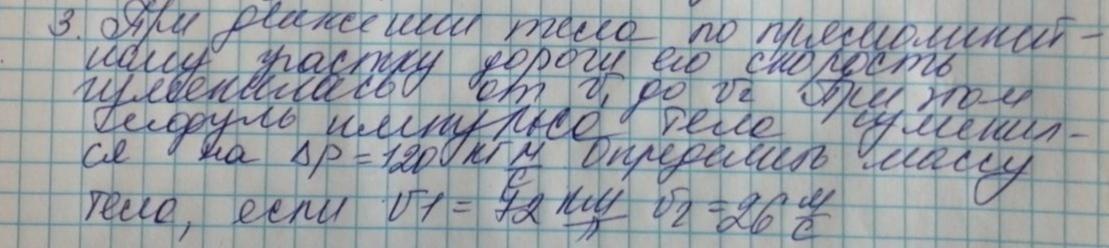 3. При движении тела по прямолиней-
ному участку дороги его скорость
изменилась от v₁ до v₂ При этом
модуль импульса тела изменил-
ся на Δp = 120 кг м/с Определить массу
тела, если v1 = 72 км/ч v2 = 26 м/с